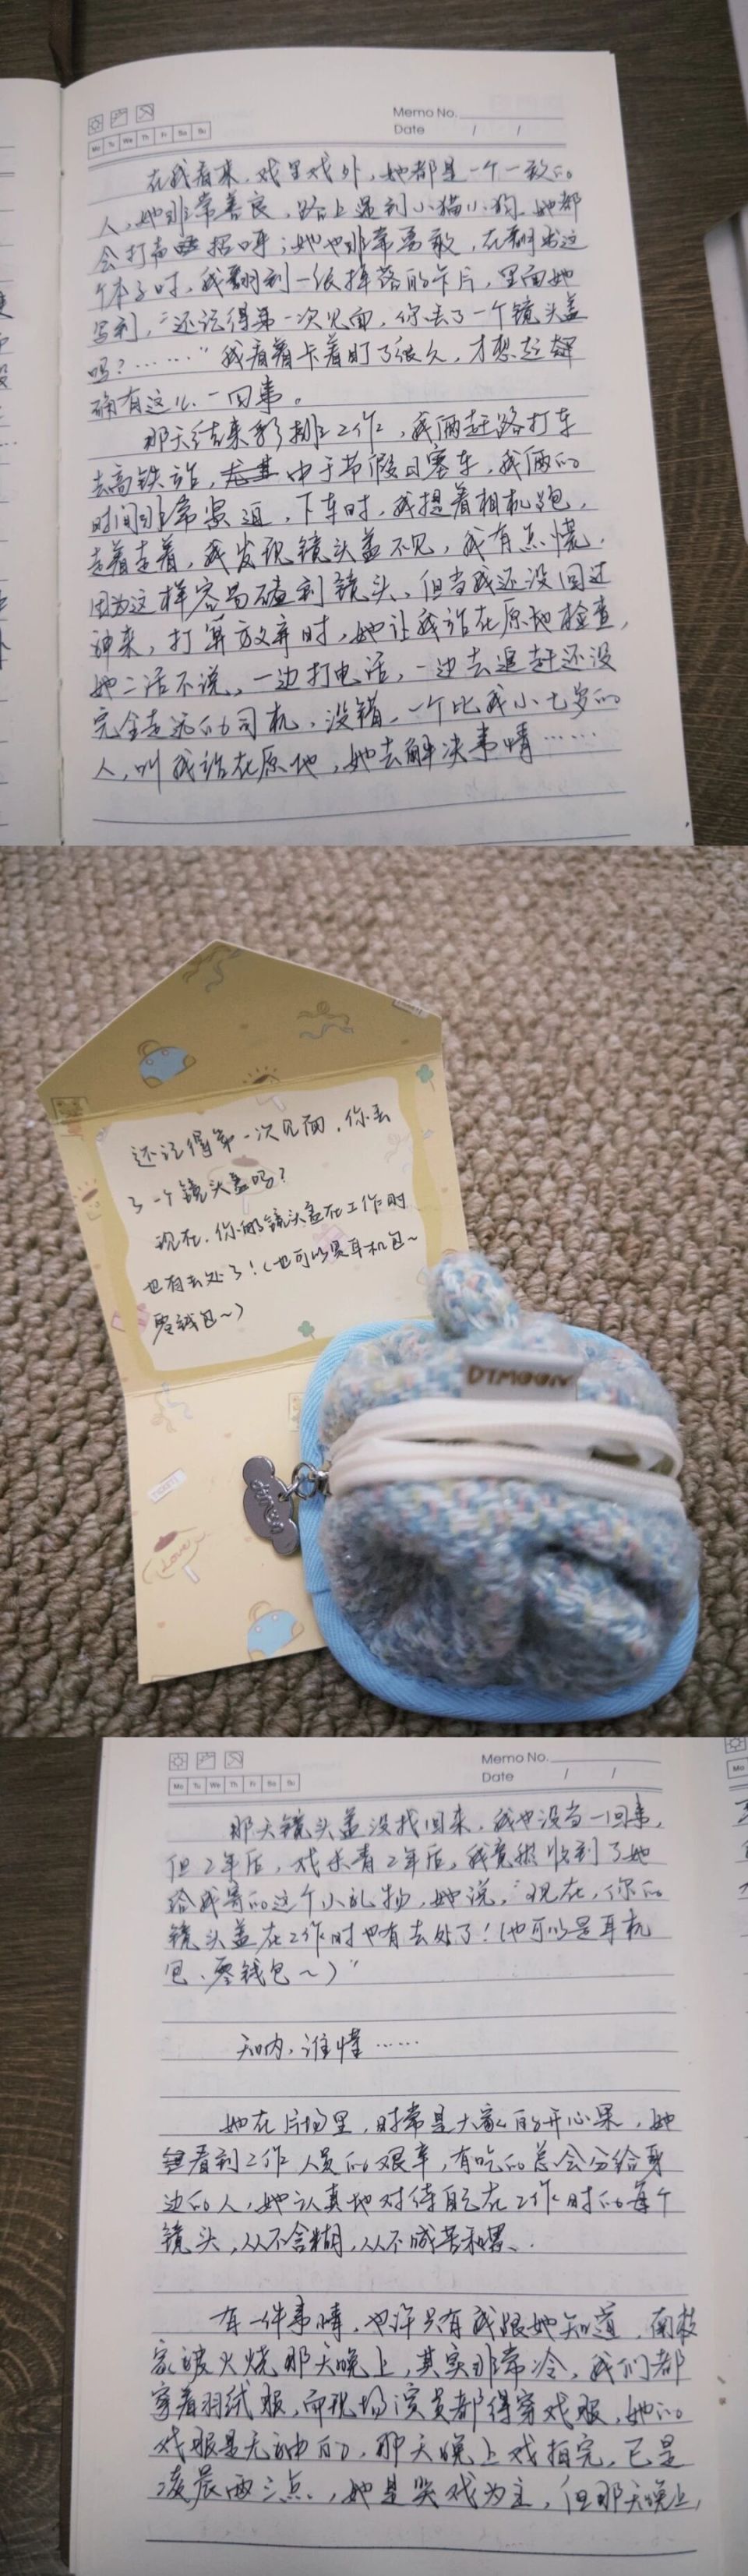 Memo No.
Date / /
Mo Tu We Th Fr Sa Su
在我看来，戏里戏外，她都是一个一致的
人，她非常善良，路上遇到小猫小狗，她都
会打声招呼；她也非常勇敢，在翻
个本子时，我翻到一张掉落的卡片，里面她
写到，“还记得第一次见面，你丢了一个镜头盖
吗？……”我看着卡着盯了很久，才想起
确有这么一回事。
那天结束彩排工作，我俩赶路打车
去高铁站，尤其由于节假日塞车，我俩的
时间非常紧迫，下车时，我提着相机跑，
走着走着，我发现镜头盖不见，我有点慌，
因为这样容易碰到镜头，但当我还没回过
神来，打算放弃时，她让我站在原地检查，
她二话不说，一边打电话，一边去追赶还没
完全走远的司机，没错，一个比我小七岁的
人，叫我站在原地，她去解决事情……
还记得第一次见面，你丢
了一个镜头盖吗？
现在，你的镜头盖在工作时
也有去处了！（也可以是耳机包~
零钱包~）
DTMOON
Love
Memo No.
Date / /
Mo Tu We Th Fr Sa Su
那天镜头盖没找回来，我也没当一回事，
但2年后，戏杀青2年后，我竟然收到了她
给我寄的这个小礼物，她说，“现在，你的
镜头盖在工作时也有去处了！（也可以是耳机
包、零钱包~）”
谁懂……
她在片场里，时常是大家的开心果，她
看到工作人员的艰辛，有吃的总会分给身
边的人，她认真地对待自己在工作时的每个
镜头，从不含糊，从不喊苦和累。
有一件事情，也许只有我跟她知道，南枝
家被火烧那天晚上，其实非常冷，我们都
穿着羽绒服，而现场演员都得穿戏服，她的
戏服是无袖的，那天晚上戏拍完，已是
凌晨两三点，她是哭戏为主，但那天晚上，